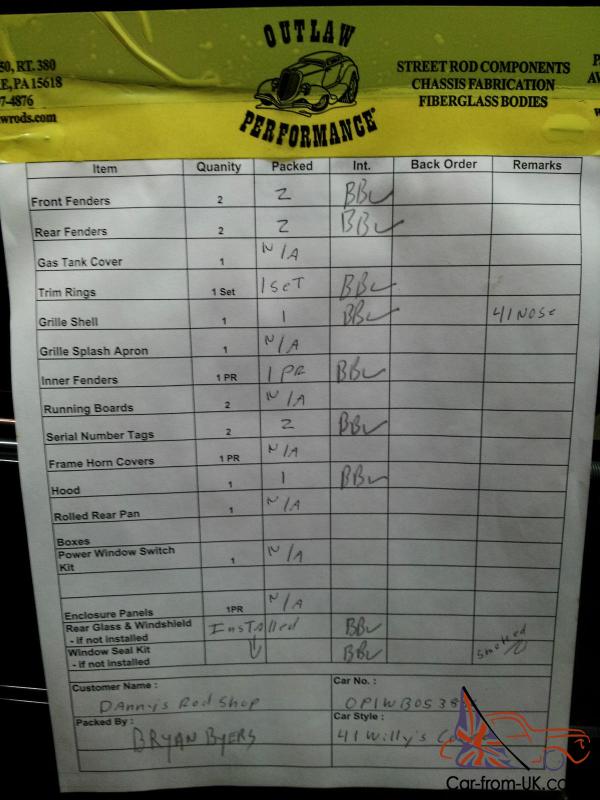 OUTLAW
PERFORMANCE
50, RT. 380
E, PA 15618
7-4876
wrods.com
STREET ROD COMPONENTS
CHASSIS FABRICATION
FIBERGLASS BODIES
Item Quanity Packed Int. Back Order Remarks
Front Fenders 2 2 BB
Rear Fenders 2 2 BB
Gas Tank Cover 1 N/A
Trim Rings 1 Set 1 SET BB
Grille Shell 1 1 BB 41 NOSE
Grille Splash Apron 1 N/A
Inner Fenders 1 PR 1 PR BB
Running Boards 2 N/A
Serial Number Tags 2 2 BB
Frame Horn Covers 1 PR N/A
Hood 1 1 BB
Rolled Rear Pan 1 N/A
Boxes
Power Window Switch
Kit 1 N/A
Enclosure Panels 1PR N/A
Rear Glass & Windshield
- if not installed Installed BB
Window Seal Kit
- if not installed BB smoked
Customer Name : Car No. :
DAnny's Rod Shop OP1WB0538
Packed By : Car Style :
BRYAN BYERS 41 Willy's
Car-from-UK.co